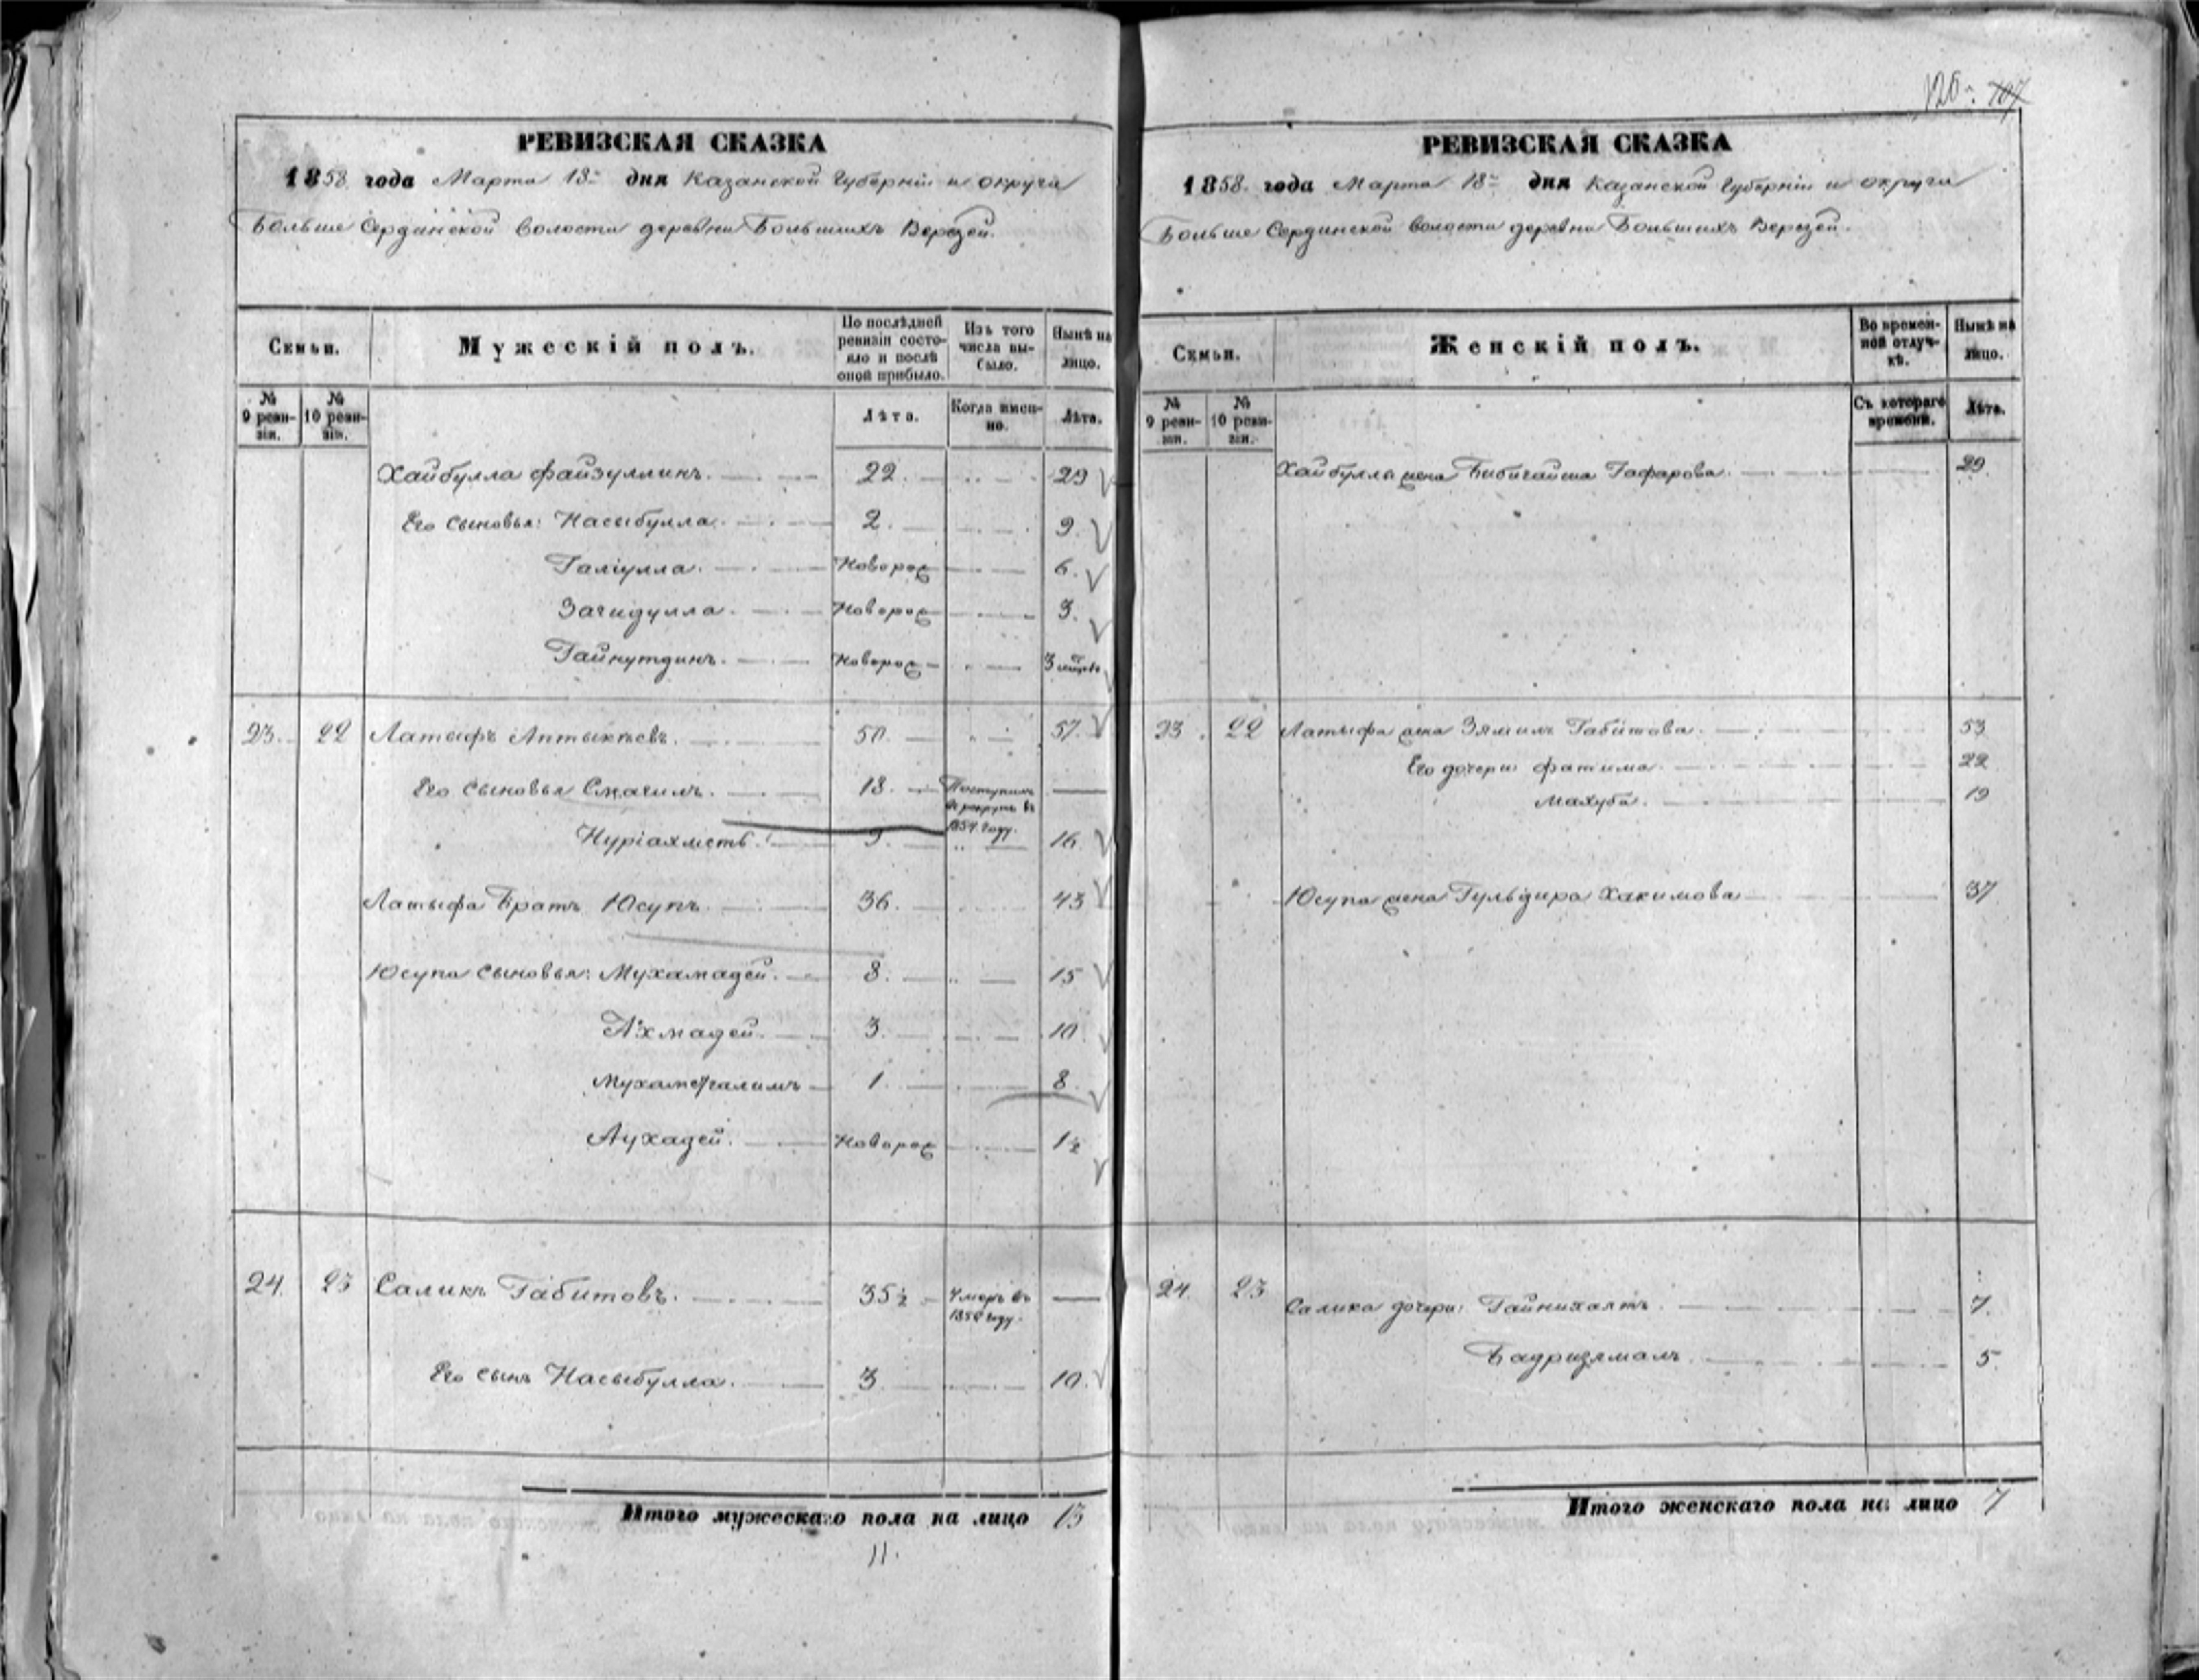 126. 107
РЕВИЗСКАЯ СКАЗКА
1858 года Марта 18 дня Казанской Губерніи и округа
Больше Сердинской волости деревни Большихъ Верезей.
Семьи.
Мужескій полъ.
По послѣдней ревизіи состояло и послѣ оной прибыло.
Изъ того числа выбыло.
Нынѣ на лицо.
№ 9 ревизіи.
№ 10 ревизіи.
Лѣта.
Когда именно.
Лѣта.
Хайбулла Файзуллинъ. 22. 29
Его сыновья: Насыбулла. 2. 9.
Галіулла. Новорож 6.
Загидулла. Новорож 3.
Гайнутдинъ. Новорож
23. 22 Латыфъ 50. 57.
Его сыновья Смагилъ. 18. Поступилъ въ рекруты въ 1854 году.
Нуріахметъ. 9. 16.
Латыфа Братъ Юсупъ. 36. 43
Юсупа сыновья: Мухамадей. 8. 15
Ахмадей. 3. 10.
Мухаметгалимъ 1. 8.
Аухадей. Новорож 1½
24. 23 Саликъ Габитовъ. 35½ Умеръ въ году.
Его сынъ Насыбулла. 3 10.
Итого мужескаго пола на лицо 13
11.
РЕВИЗСКАЯ СКАЗКА
1858. года Марта 18 дня Казанской Губерніи и округа
Больше Сердинской волости деревни Большихъ Верезей.
Семьи.
Женскій полъ.
Во временной отлучкѣ.
Нынѣ на лицо.
№ 9 ревизіи.
№ 10 ревизіи.
Съ котораго времени.
Лѣта.
Хайбуллы жена Бибигайша Гафарова. 29.
23. 22 Латыфа жена Габитова. 53
Его дочери Фатима. 22
Махуба. 19
Юсупа жена Гульдира Хакимова 37
24. 23 Салика дочери: 7.
Бадризямалъ. 5.
Итого женскаго пола на лицо 7